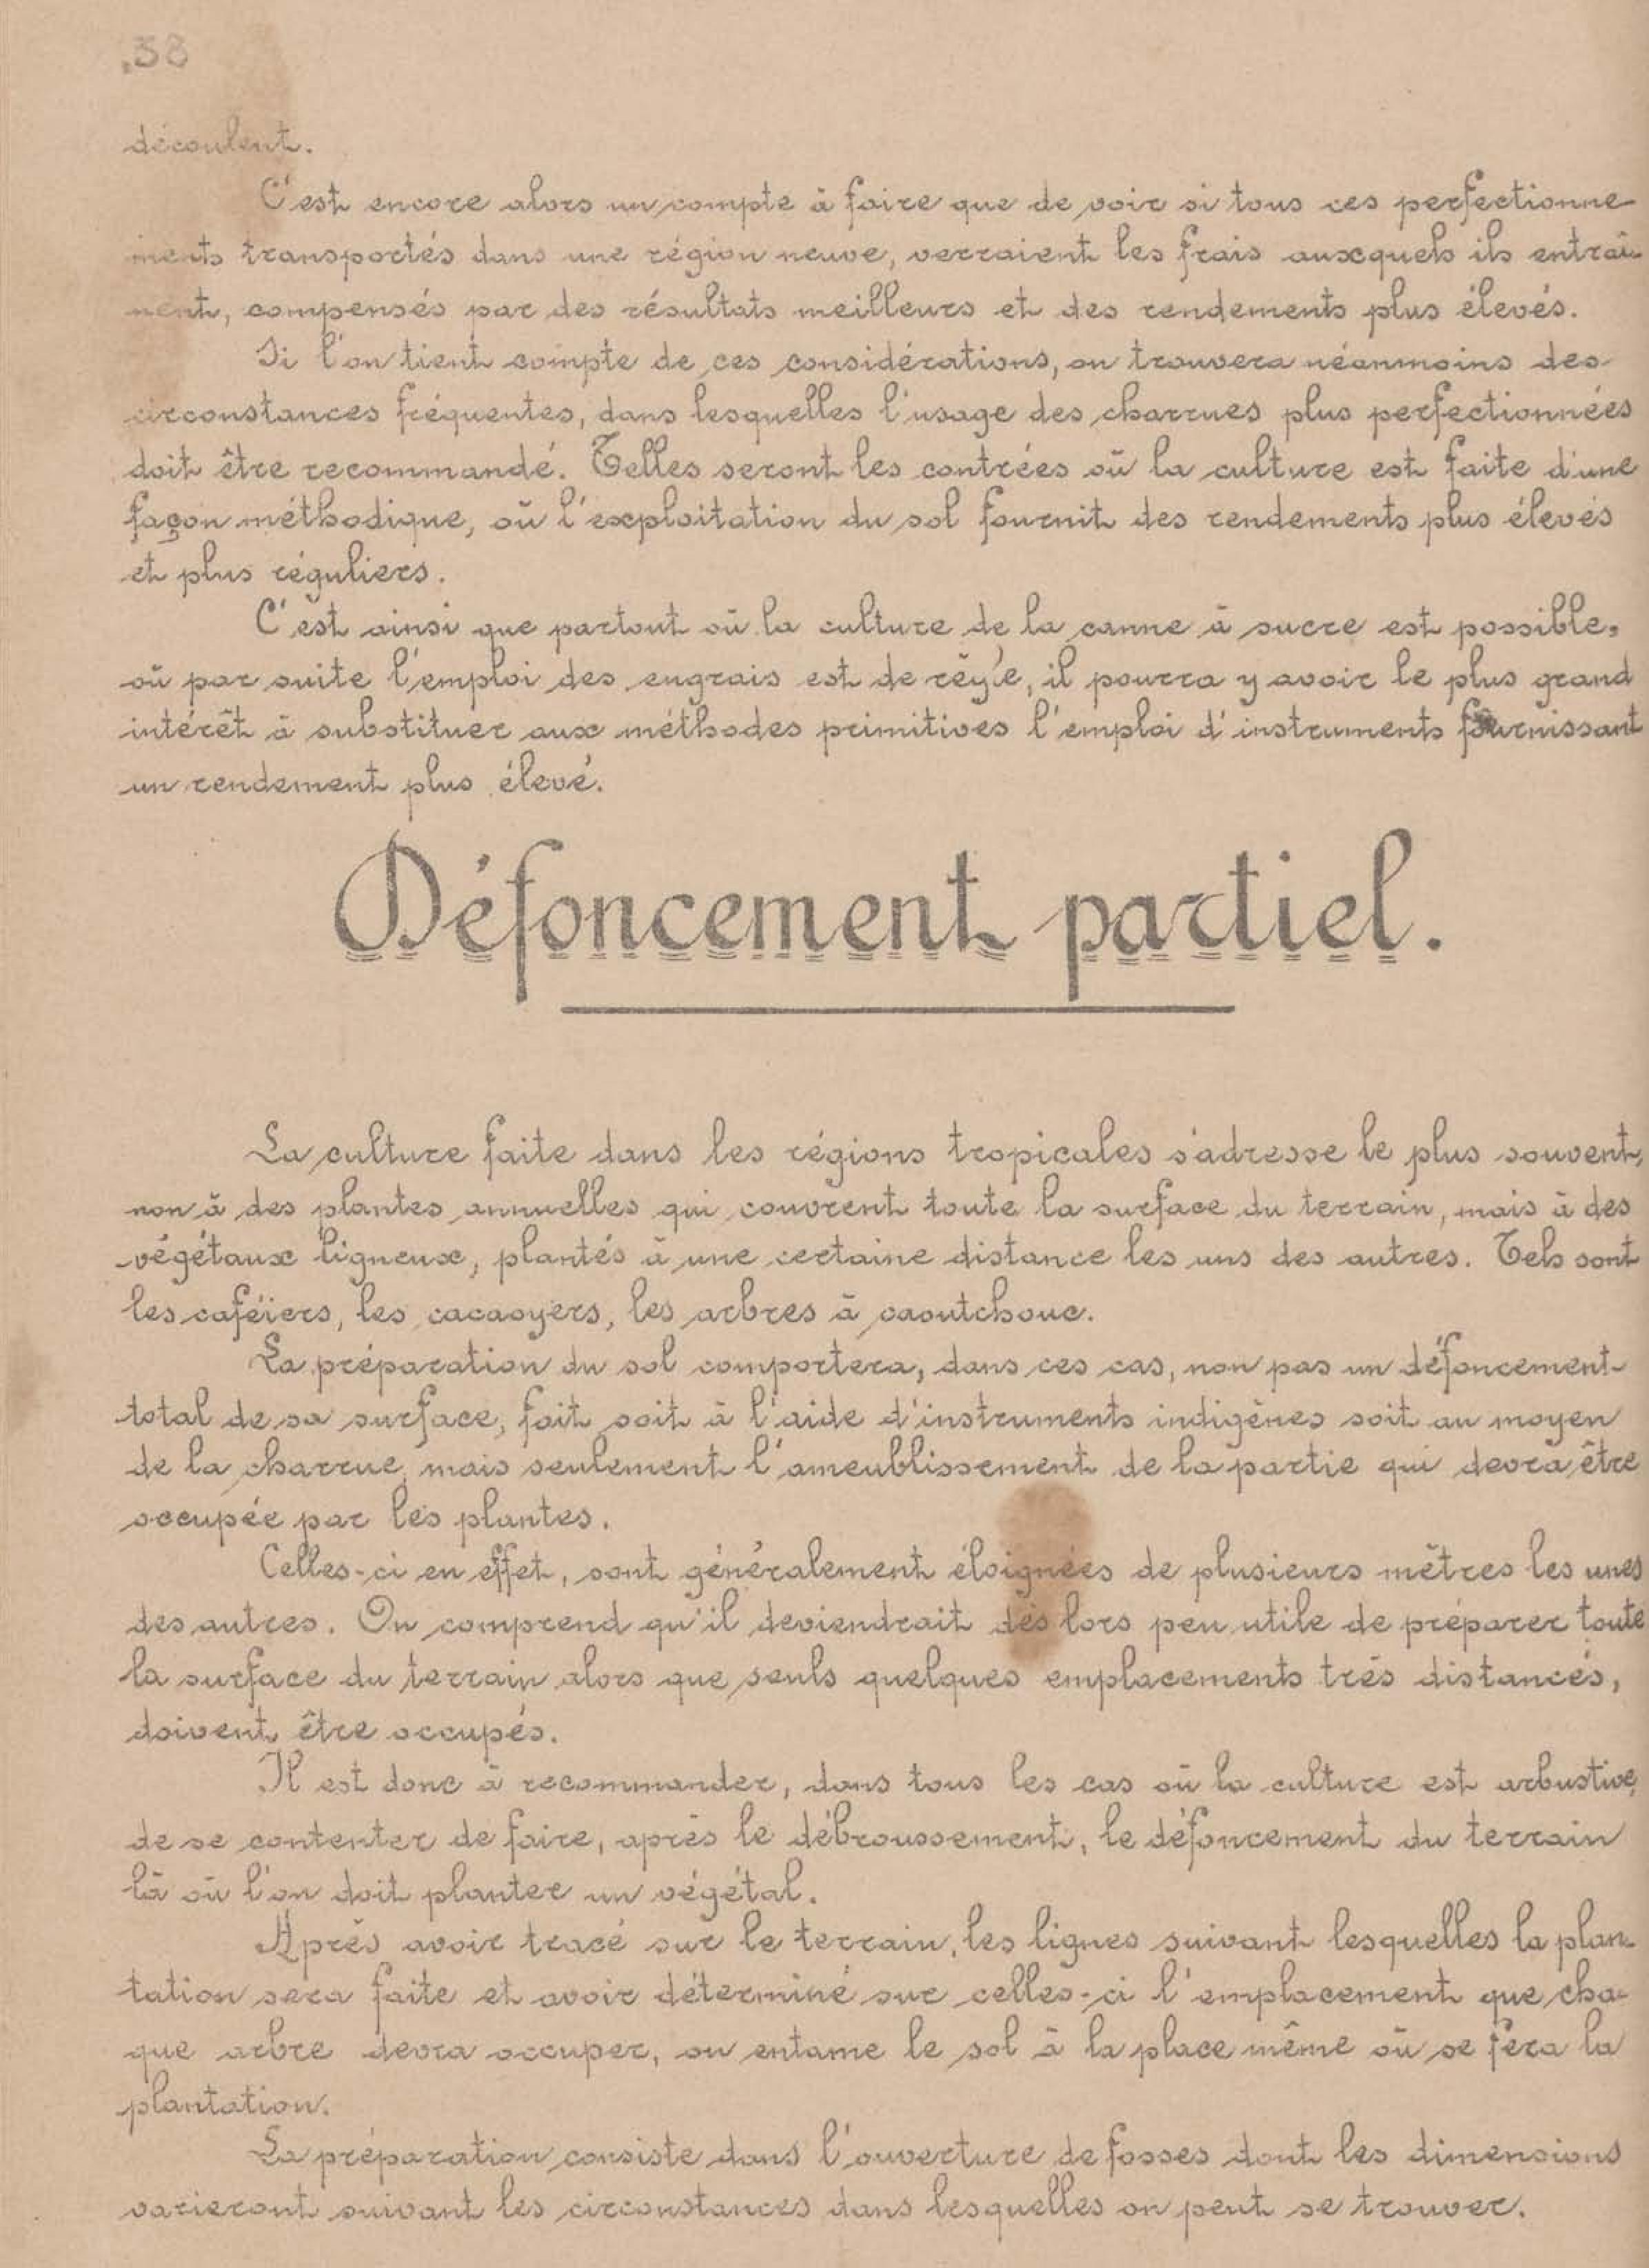 .38
découlent.
C'est encore alors un compte à faire que de voir si tous ces perfectionne-
ments transportés dans une région neuve, verraient les frais auxquels ils entraî-
nent, compensés par des résultats meilleurs et des rendements plus élevés.
Si l'on tient compte de ces considérations, on trouvera néanmoins des
circonstances fréquentes, dans lesquelles l'usage des charrues plus perfectionnées
doit être recommandé. Telles seront les contrées où la culture est faite d'une
façon méthodique, où l'exploitation du sol fournit des rendements plus élevés
et plus réguliers.
C'est ainsi que partout où la culture de la canne à sucre est possible,
où par suite l'emploi des engrais est de règle, il pourra y avoir le plus grand
intérêt à substituer aux méthodes primitives l'emploi d'instruments fournissant
un rendement plus élevé.
Défoncement partiel.
La culture faite dans les régions tropicales s'adresse le plus souvent,
non à des plantes annuelles qui couvrent toute la surface du terrain, mais à des
végétaux ligneux, plantés à une certaine distance les uns des autres. Tels sont
les caféiers, les cacaoyers, les arbres à caoutchouc.
La préparation du sol comportera, dans ces cas, non pas un défoncement
total de sa surface, fait soit à l'aide d'instruments indigènes soit au moyen
de la charrue, mais seulement l'ameublissement de la partie qui devra être
occupée par les plantes.
Celles-ci en effet, sont généralement éloignées de plusieurs mètres les unes
des autres. On comprend qu'il deviendrait dès lors peu utile de préparer toute
la surface du terrain alors que seuls quelques emplacements très distancés,
doivent être occupés.
Il est donc à recommander, dans tous les cas où la culture est arbustive,
de se contenter de faire, après le débroussement, le défoncement du terrain
là où l'on doit planter un végétal.
Après avoir tracé sur le terrain, les lignes suivant lesquelles la plan-
tation sera faite et avoir déterminé sur celles-ci l'emplacement que cha-
que arbre devra occuper, on entame le sol à la place même où se fera la
plantation.
La préparation consiste dans l'ouverture de fosses dont les dimensions
varieront suivant les circonstances dans lesquelles on peut se trouver.